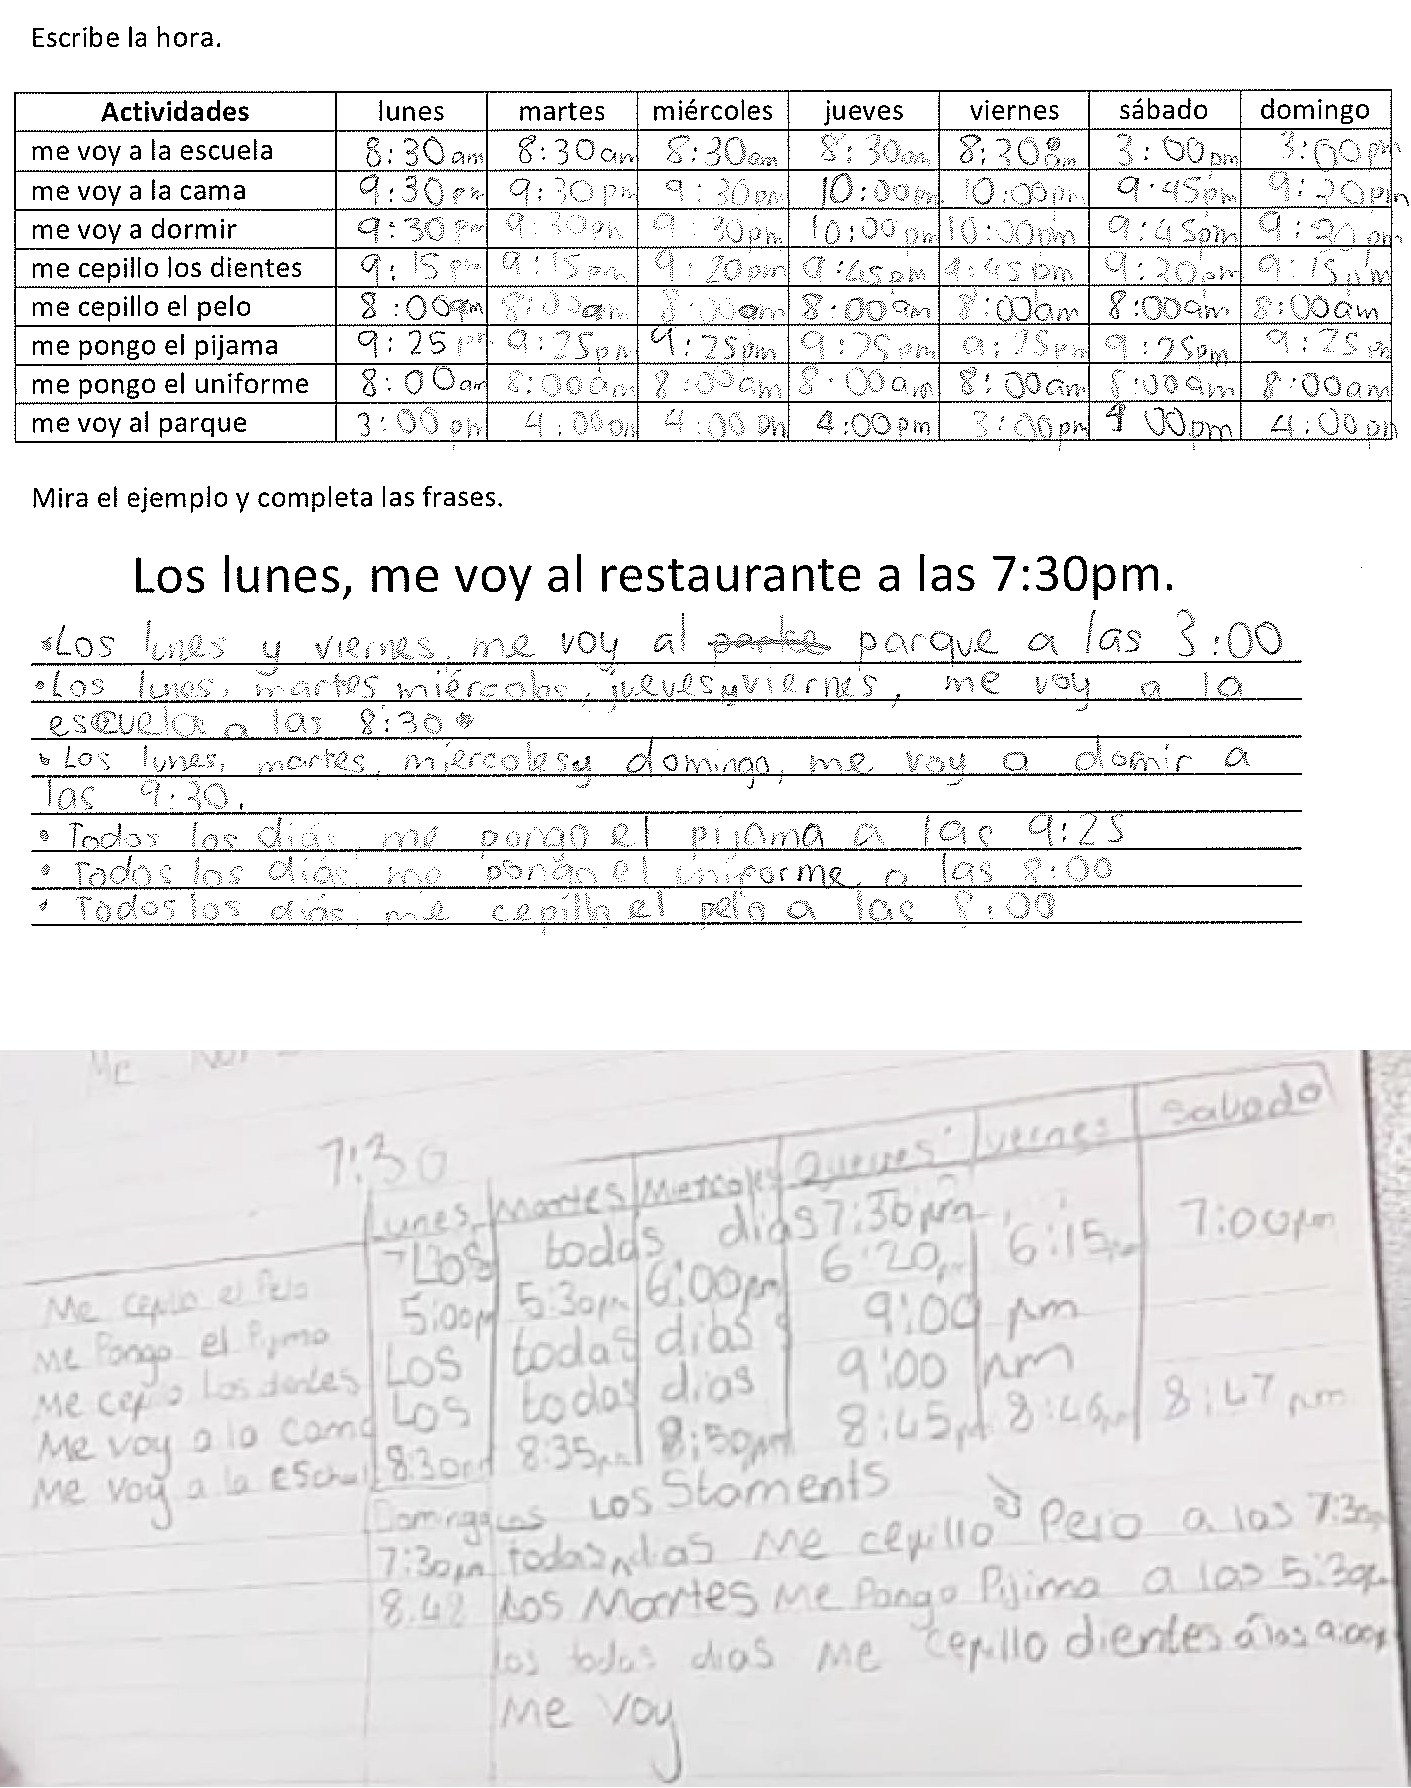 Escribe la hora.
Actividades lunes martes miércoles jueves viernes sábado domingo
me voy a la escuela 8:30am 8:30am 8:30am 8:30am 8:30am 3:00pm 3:00pm
me voy a la cama 9:30pm 9:30pm 9:30pm 10:00pm 10:00pm 9:45pm 9:20pm
me voy a dormir 9:30pm 9:30pm 9:30pm 10:00pm 10:00pm 9:45pm 9:20pm
me cepillo los dientes 9:15pm 9:15pm 9:20pm 9:45pm 9:45pm 9:20pm 9:15pm
me cepillo el pelo 8:00am 8:00am 8:00am 8:00am 8:00am 8:00am 8:00am
me pongo el pijama 9:25pm 9:25pm 9:25pm 9:25pm 9:25pm 9:25pm 9:25pm
me pongo el uniforme 8:00am 8:00am 8:00am 8:00am 8:00am 8:00am 8:00am
me voy al parque 3:00pm 4:00pm 4:00pm 4:00pm 3:00pm 4:00pm 4:00pm
Mira el ejemplo y completa las frases.
Los lunes, me voy al restaurante a las 7:30pm.
•Los lunes y viernes, me voy al parque a las 3:00
•Los lunes, martes miércoles, jueves y viernes, me voy a la
escuela a las 8:30
• Los lunes, martes, miércoles y domingo, me voy a domir a
las 9:30.
• Todos los diás, me pongo el pijama a las 9:25
• Todos los diás, me pongo el uniforme, a las 8:00
• Todos los diás, me cepillo el pelo a las 8:00
Me
7:30
Lunes Martes Miercoles Queves Vernes Sabado
Me cepillo el Pelo Los todas dias 7:30pm
Me Pongo el Pijima 5:00pm 5:30pm 6:00pm 6:20pm 6:15pm 7:00pm
Me cepillo Los dentes Los todas dias 9:00 pm
Me voy a la Cama Los todas dias 9:00 pm
Me voy a la 8:30pm 8:35pm 8:50pm 8:45pm 8:46pm 8:47pm
Domingo Los Staments
7:30pm todas dias Me cepillo Pero a las 7:30pm
8.48 Los Martes Me Pongo Pijima a las 5:30pm
los todas dias Me cepillo dientes á las 9:00pm
Me voy